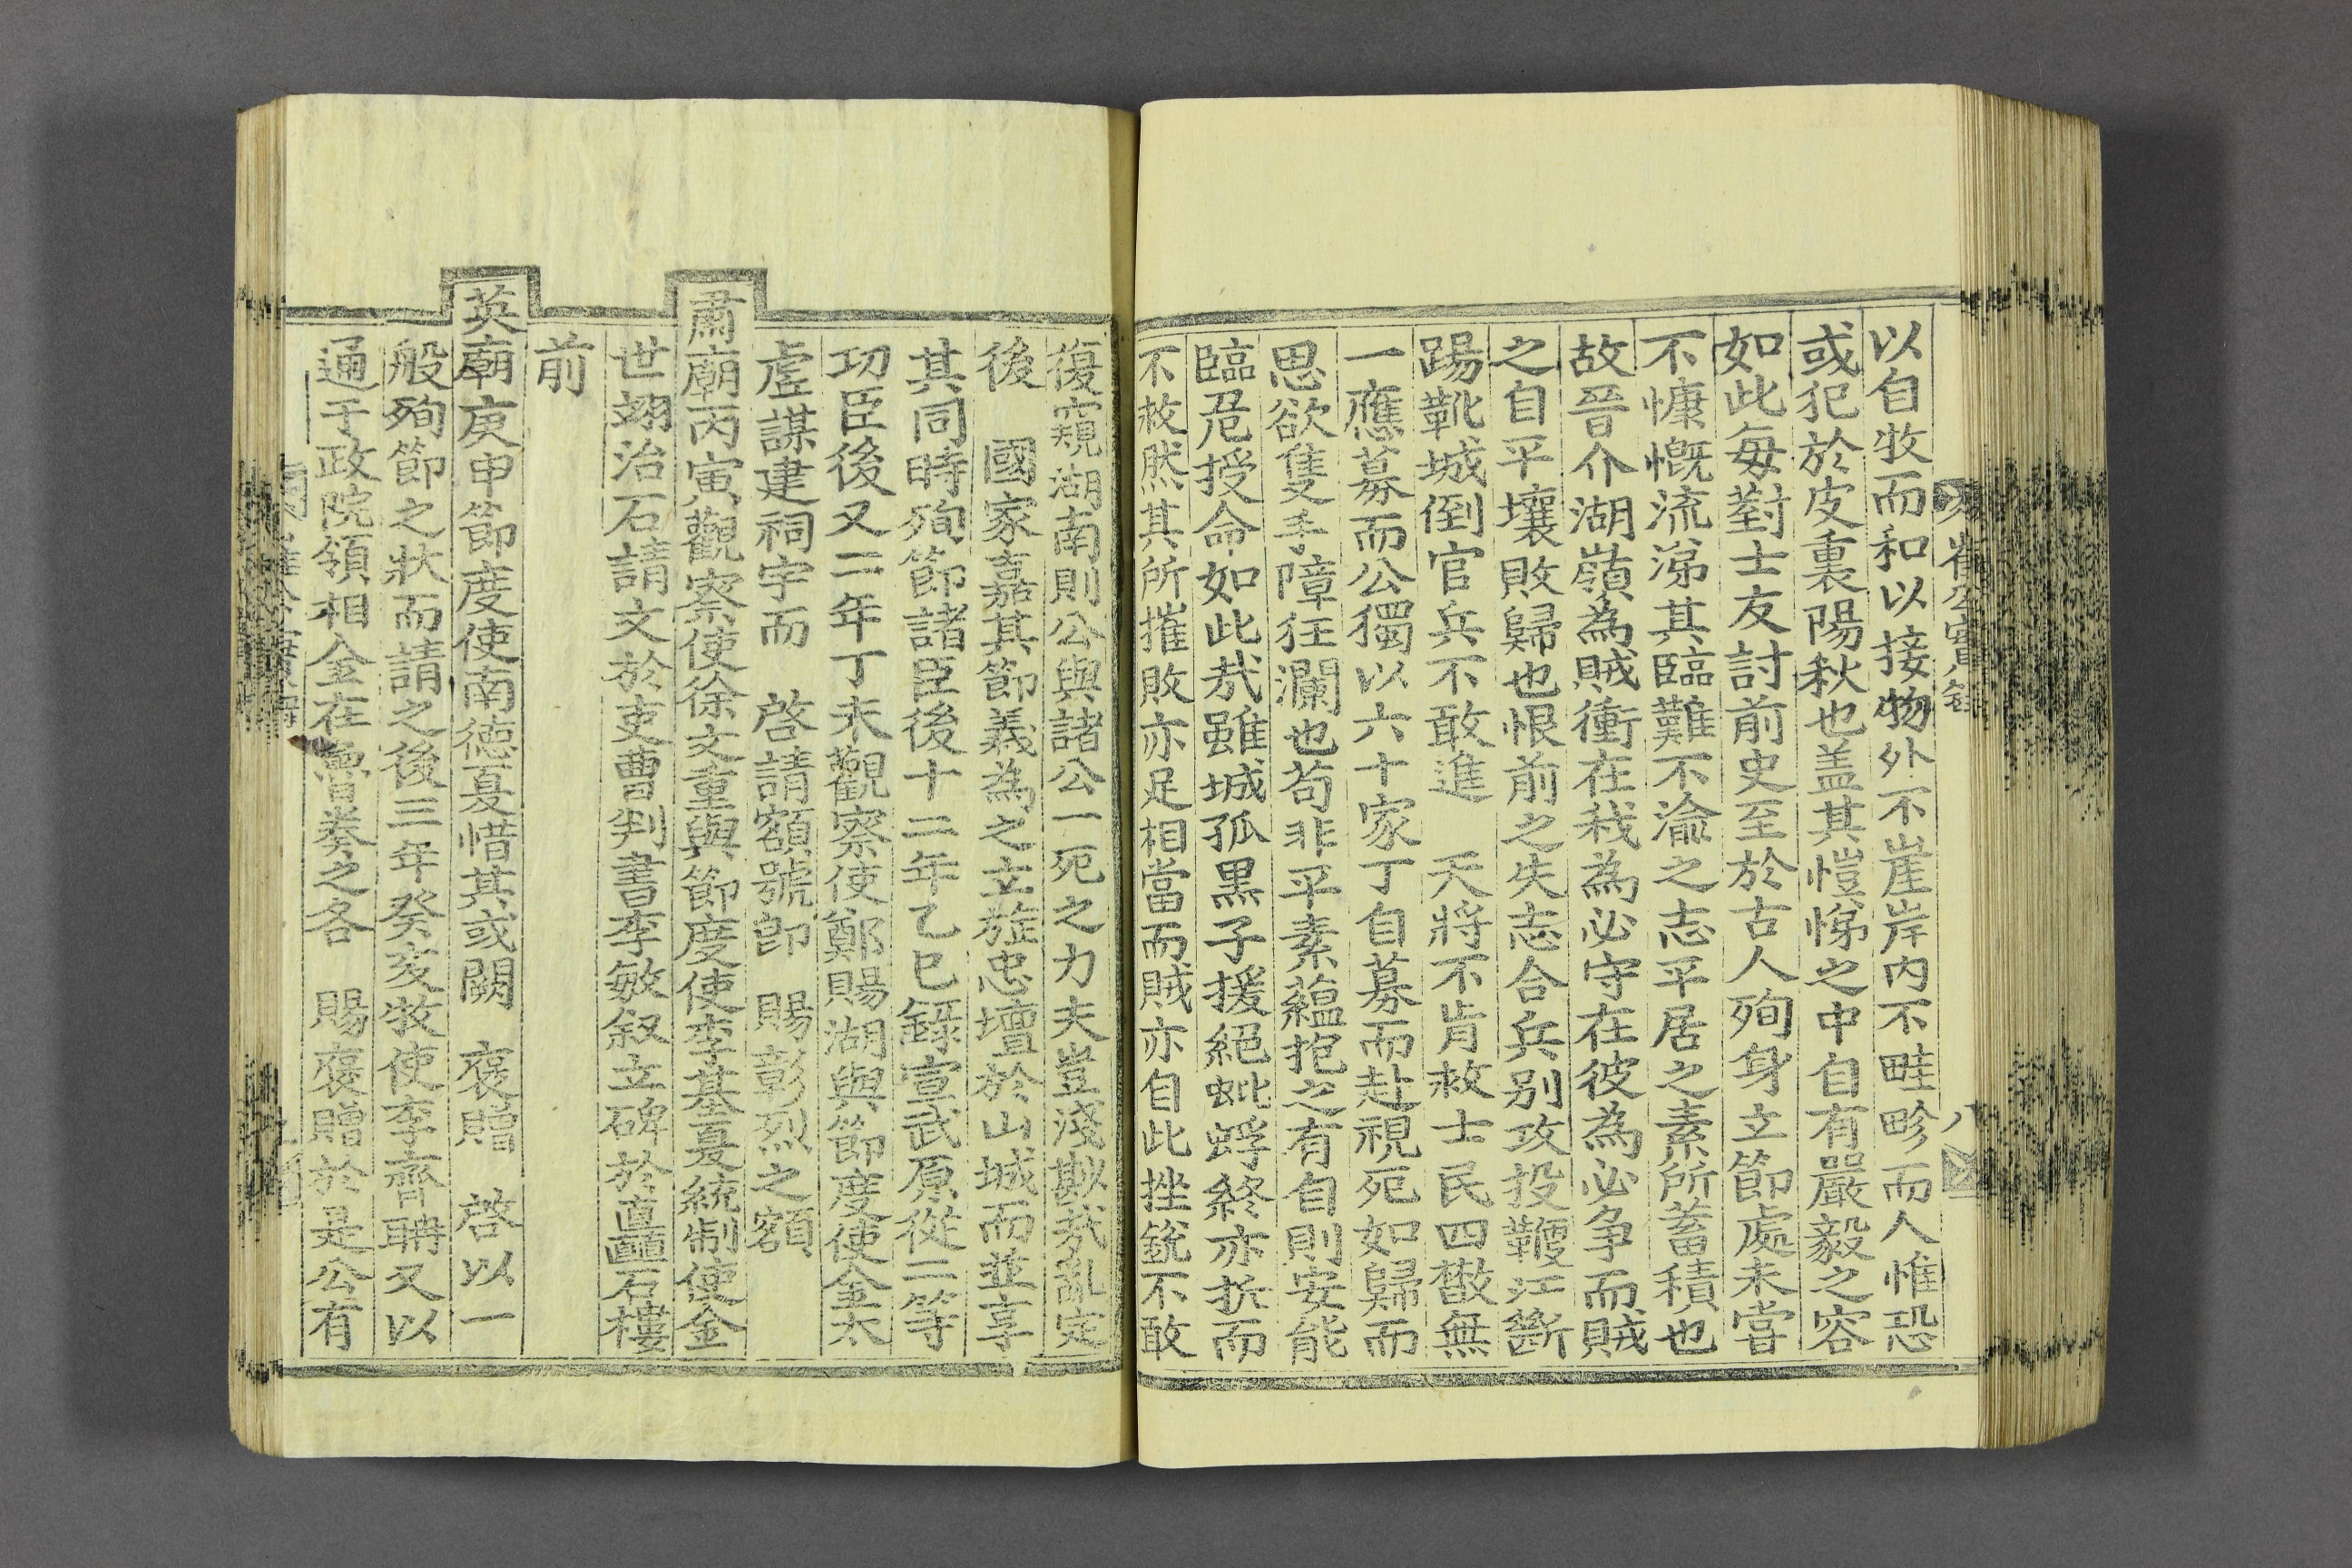 崔公實錄 八
以自牧而和以接物外不崖岸內不畦畛而人惟恐
或犯於皮裏陽秋也盖其愷悌之中自有嚴毅之容
如此每對士友討前史至於古人殉身立節處未嘗
不慷慨流涕其臨難不渝之志平居之素所蓄積也
故晉介湖嶺為賊衝在我為必守在彼為必爭而賊
之自平壤敗歸也恨前之失志合兵別攻投鞭江斷
踢靴城倒官兵不敢進 天將不肯救士民四散無
一應募而公獨以六十家丁自募而赴視死如歸而
思欲隻手障狂瀾也苟非平素蘊抱之有自則安能
臨危授命如此哉雖城孤黑子援絕蚍蜉終亦折而
不救然其所摧敗亦足相當而賊亦自此挫銳不敢
復窺湖南則公與諸公一死之力夫豈淺尠哉亂定
後 國家嘉其節義為之立旌忠壇於山城而並享
其同時殉節諸臣後十二年乙巳錄宣武原從二等
功臣後又二年丁未觀察使鄭賜湖與節度使金太
虛謀建祠宇而 啓請額號卽 賜彰烈之額
肅廟丙寅觀察使徐文重與節度使李基夏統制使金
世翊治石請文於吏曹判書李敏叙立碑於直矗石樓
前
英廟庚申節度使南德夏惜其或闕 褒贈 啓以一
般殉節之狀而請之後三年癸亥牧使李齊聃又以
通于政院領相金在魯奏之各 賜褒贈於是公有